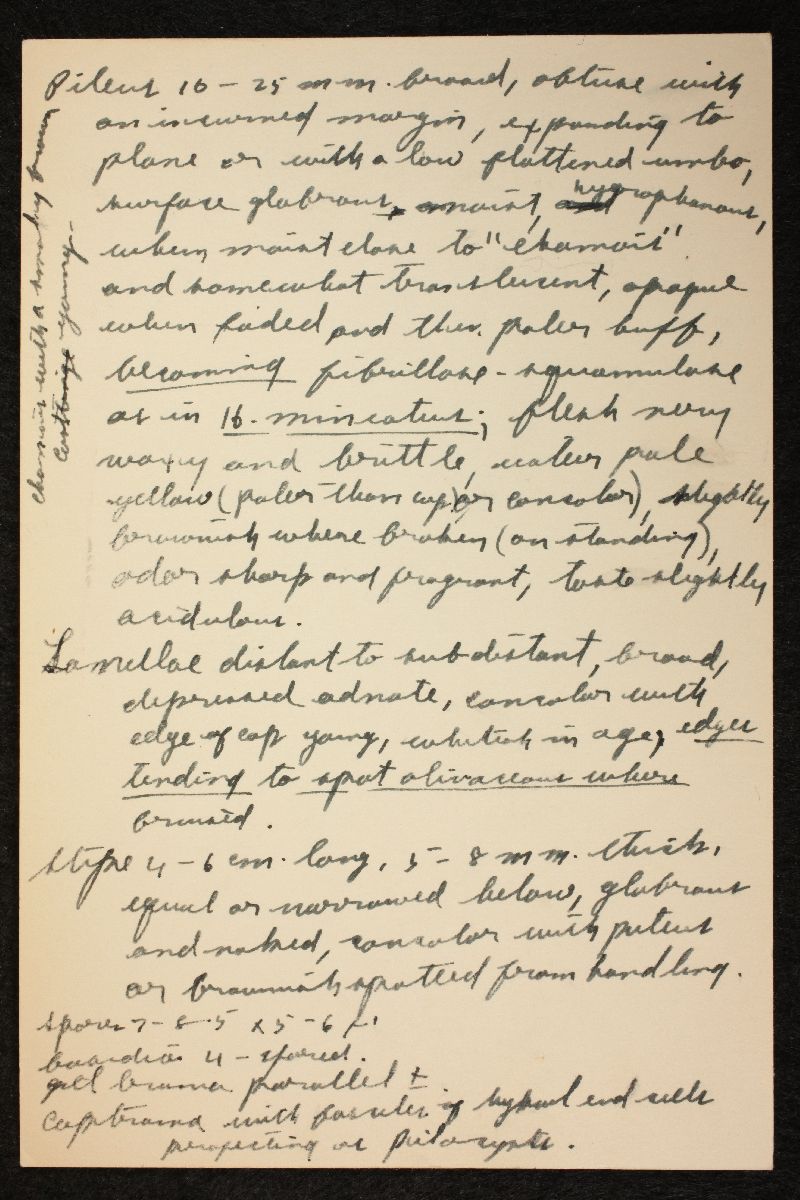 Pileus 10 - 25 mm. broad, obtuse with
an incurved margin, expanding to
plane or with a low flattened umbo,
surface glabrous, moist, hygrophanous,
when moist close to "chamois"
and somewhat translucent, opaque
when faded and then paler buff,
becoming fibrillose - squamulose
as in H. miniatus; flesh very
waxy and brittle, pale
yellow (paler than cap or concolor), slightly
brownish where broken (on standing),
odor sharp and fragrant, taste slightly
acidulous.
Lamellae distant to subdistant, broad,
depressed adnate, concolor with
edge of cap young, whitish in age, edges
tending to spot olivaceous where
bruised.
Stipe 4 - 6 cm. long, 5 - 8 mm. thick,
equal or narrowed below, glabrous
and naked, concolor with pileus
or brownish spotted from handling.
spores 7 - 8.5 x 5 - 6 µ
basidia 4 - spored.
gill trama parallel ±
Cap trama with fascicles of hyphal end cells
projecting as pilocystidia.
chamois with a smoky brown
young -